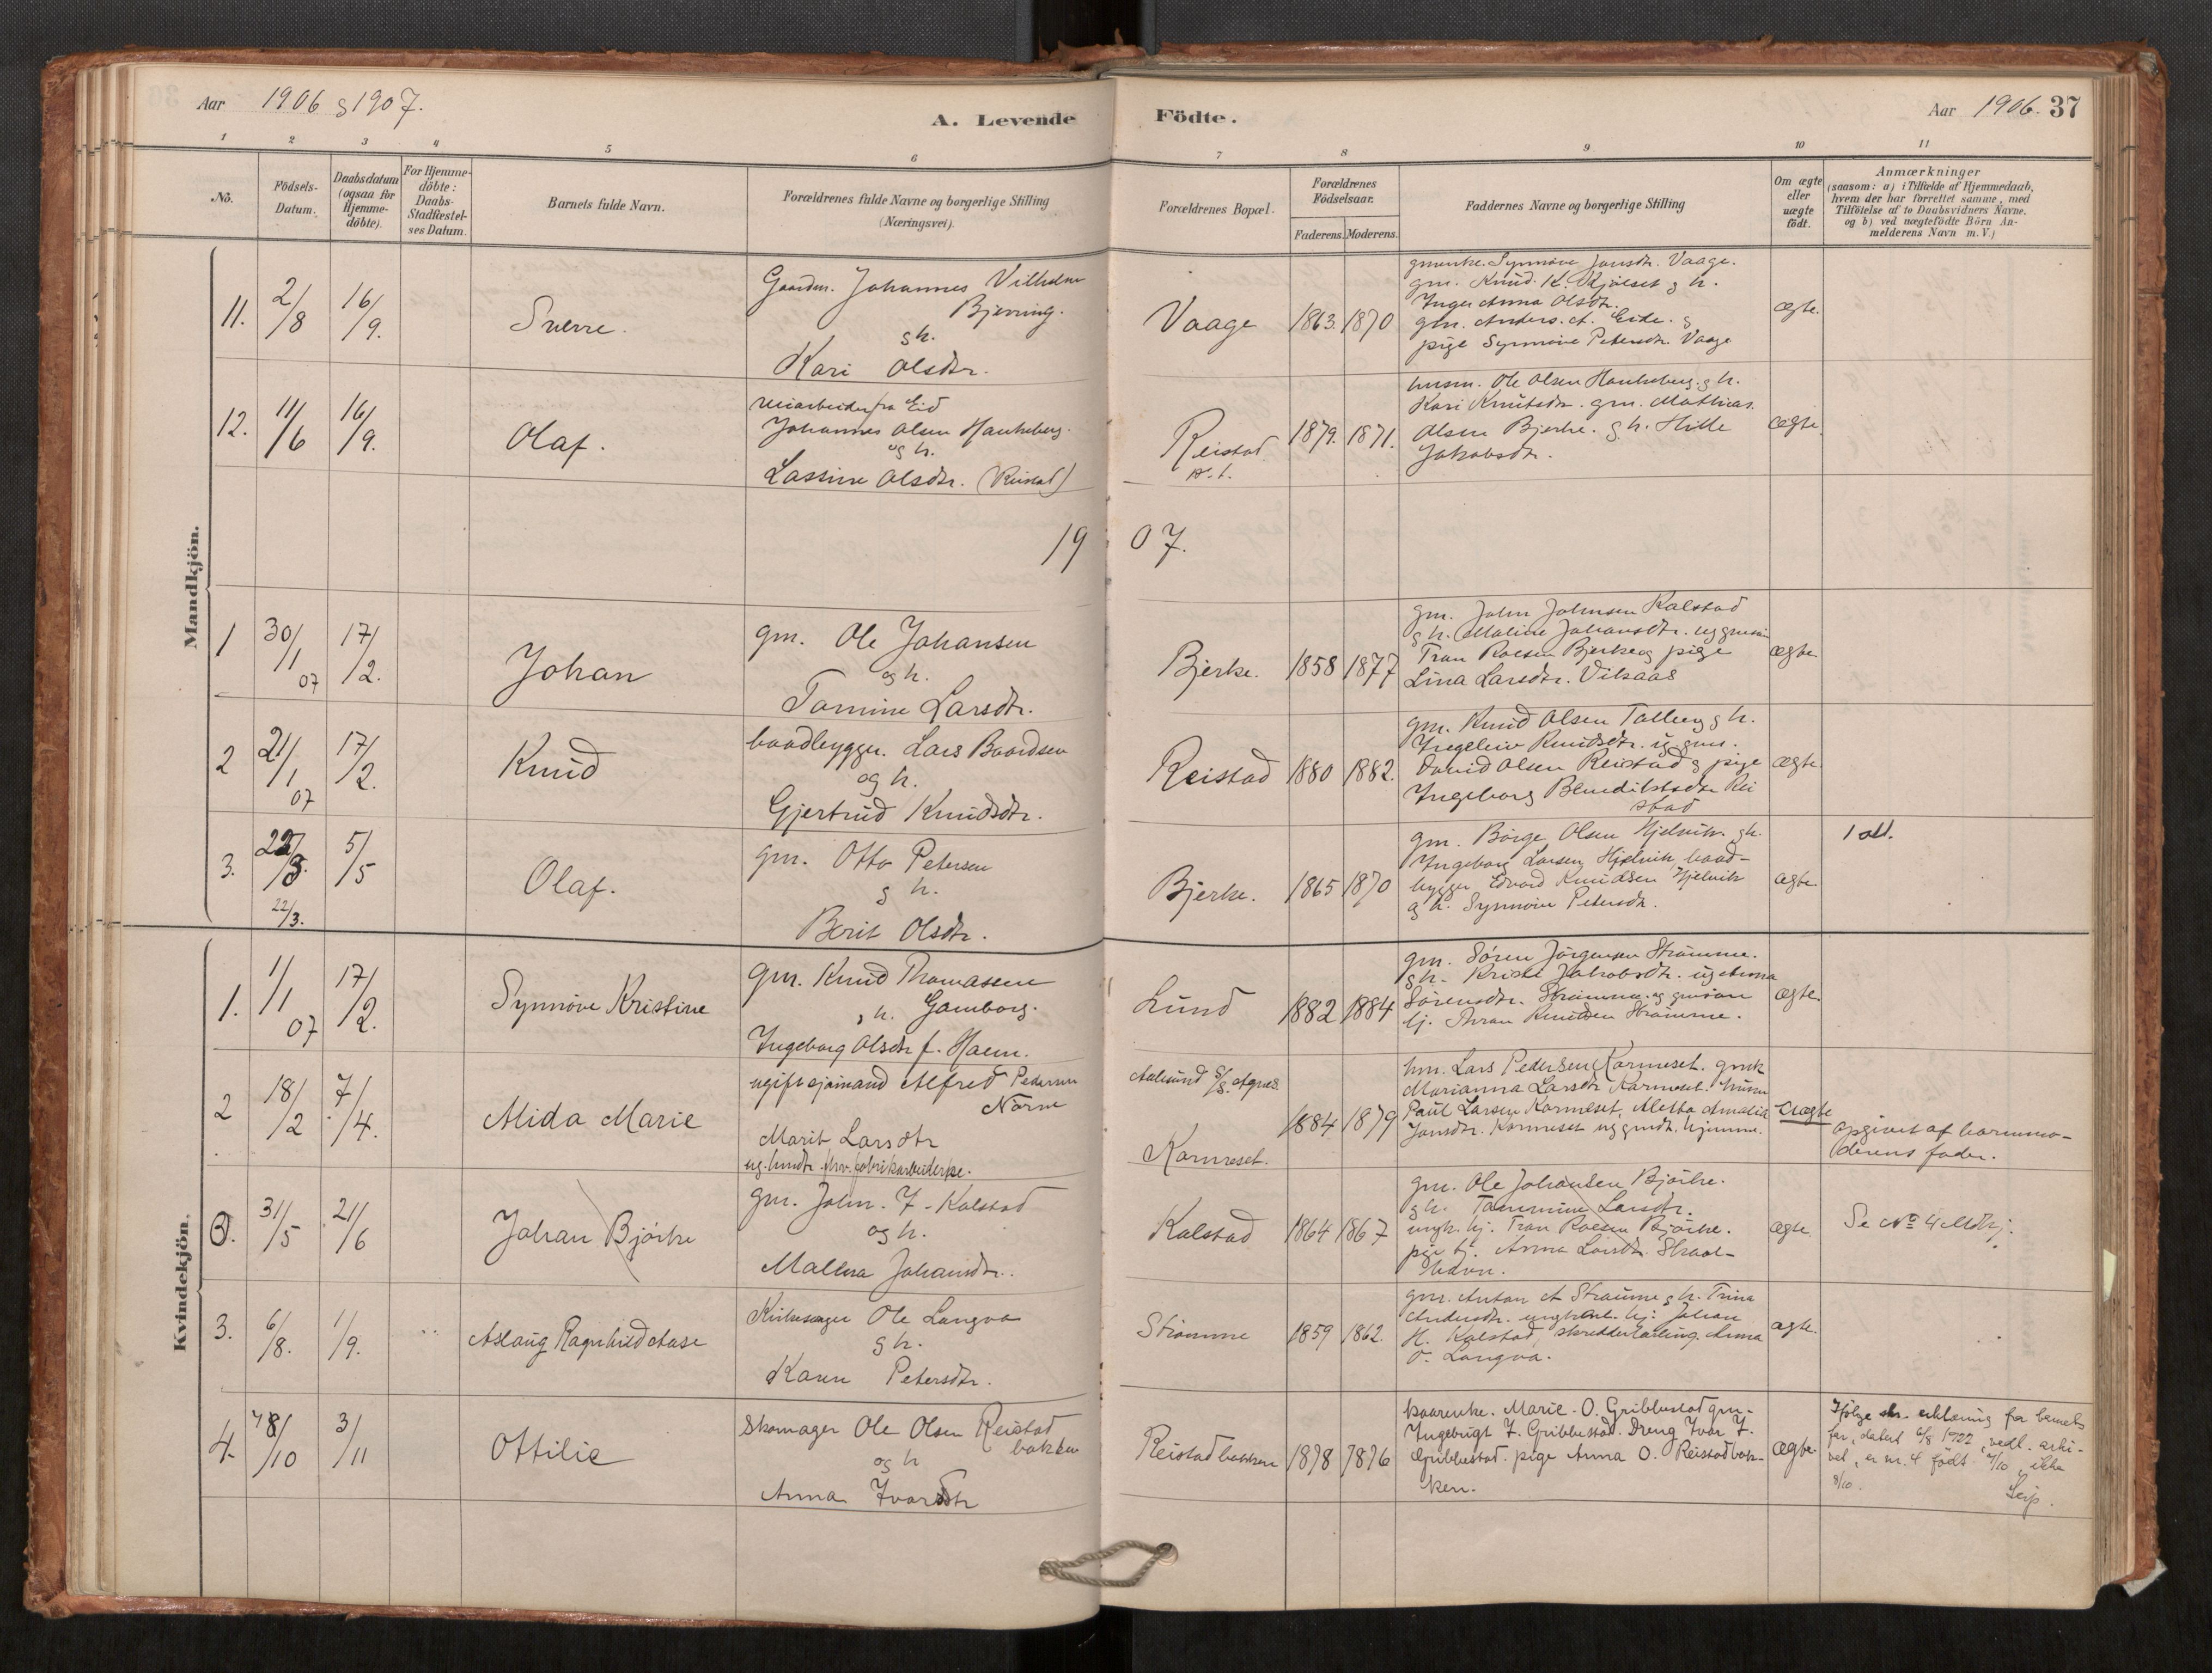 Aar 1906 g 1907.
A. Levende
Födte.
Aar 1906. 37
1 2 3 4 5 6 7 8 9 10 11
No.
Födsels-
Datum.
Daabsdatum
(ogsaa for
Hjemme-
döbte).
For Hjemme-
döbte:
Daabs-
Stadfæstel-
ses Datum.
Barnets fulde Navn.
Forældrenes fulde Navne og borgerlige Stilling
(Næringsvei).
Forældrenes Bopæl.
Forældrenes
Födselsaar.
Faderens. Moderens.
Faddernes Navne og borgerlige Stilling
Om ægte
eller
uægte
födt.
Anmærkninger
(saasom: a) i Tilfælde af Hjemmedaab,
hvem der har forrettet samme, med
Tilföielse af to Daabsvidners Navne,
og b) ved uægtefödte Börn An-
melderens Navn m. V.)
Mandkjön.
11. 2/8 16/9. Sverre.
Gaardm. Johannes Vilhelm
Bjerring.
g h.
Kari Olsdtr.
Vaage 1863. 1870
Synnøve Jonsdtr. Vaage.
gm. Knud K. g h.
Inger Anna Olsdtr.
gm. Anders A. Eide. g
pige Synnøve Petersdtr. Vaage
ægte.
12. 11/6 16/9. Olaf.
veiarbeider fra Eid
Johannes Olsen Haukeberg.
og h.
Lassine Olsdtr. (Reistad)
Reistad
p.t.
1879. 1871.
husm. Ole Olsen Haukeberg. g h.
Kari Knutsdtr. gm. Mathias
Olsen Bjerke. g h. Hille
Jakobsdtr.
ægte.
1907.
1 30/1 07 17/2. Johan
gm. Ole Johansen
og h.
Tomine Larsdtr.
Bjerke. 1858 1877
gm. John Johnsen Kalstad
g h. Maline Johansdtr. ug gmsøn
Tran Roesen Bjerke og pige
Lina Larsdtr. Viksaas
ægte
2 21/1 07 17/2. Knud
baadbygger. Lars Baardsen
og h.
Gjertrud Knudsdtr.
Reistad 1880 1882.
gm. Knud Olsen Talberg g h.
Ingeleiv Knudsdtr. ug gms.
David Olsen Reistad g pige
Ingeborg Bendiktsdtr. Rei
stad
ægte.
3. 22/3. 5/5 Olaf.
22/3.
gm. Otto Petersen
g h.
Berit Olsdtr.
Bjerke. 1865 1870
gm. Børge Olsen Hjelvik. g h.
Ingeborg Larsen Hjelvik baad-
bygger Edvard Knudsen Hjelvik
g h. Synnøve Petersdtr.
ægte.
Kvindekjön.
1. 1/1 07 17/2. Synnøve Kristine
gm. Knud Thomassen
g h. Gamborg.
Ingeborg Olsdtr f. Haem.
Lund 1882 1884
gm. Søren Jørgensen Strømme.
g h. Kristi Jakobsdtr. ug Anna
Sørensdtr. Strømme. og gmsøn
hj. Thran Knudsen Strømme.
ægte.
2 18/2 7/4. Alida Marie
ugift sjømand Alfred Pedersen
Nørve
Marit Larsdtr
ug. hmdtr. fabrikarbeiderske.
Aalesund
Karmeset.
1884 1879
hm. Lars Pedersen Karmeset. gmk
Marianna Larsdtr Karmeset. husm
Paul Larsen Karmeset, Aletta Amalia
Jonsdtr. Karmeset ug gmdt. hjemme.
uægte
Opgivet af barnemo-
derens fader.
3. 31/5 21/6 Johan Bjørke
gm. John. J. Kalstad
og h.
Malena Johansdtr.
Kalstad 1864 1867
gm. Ole Johansen Bjørke.
g h. Tammine Larsdtr.
ungk. hj. Tran Roesen Bjørke.
pige hj. Anna Larsdtr.
havn.
ægte.
Se No 4 Mdkj.
3. 6/8. 1/9. Aslaug Ragnhild Aase
Kirkesanger Ole Langva
g h.
Karen Petersdtr.
Strømme 1859 1862.
gm. Anton A Straume g h. Trina
Andersdtr. ungkarl. hj. Johan
H. Kalstad, skredderlærling. Anna
O. Langva.
ægte.
4. 8/10 3/11 Ottilie
Skomager Ole Olsen Reistad
bakken
og h
Anna Ivarsdtr
Reistadbakken 1878 1876
kaarenke. Marie. O. Gribbestad gm.
Ingebrigt J. Gribbestad. Dreng Ivar J.
Gribbestad. pige Anna O. Reistadbak-
ken.
ægte.
Ifølge skr. erklæring fra barnets
far, datert 6/8 1922, vedl. arki-
vet, er nr. 4 født 7/10, ikke
8/10.
Seip.